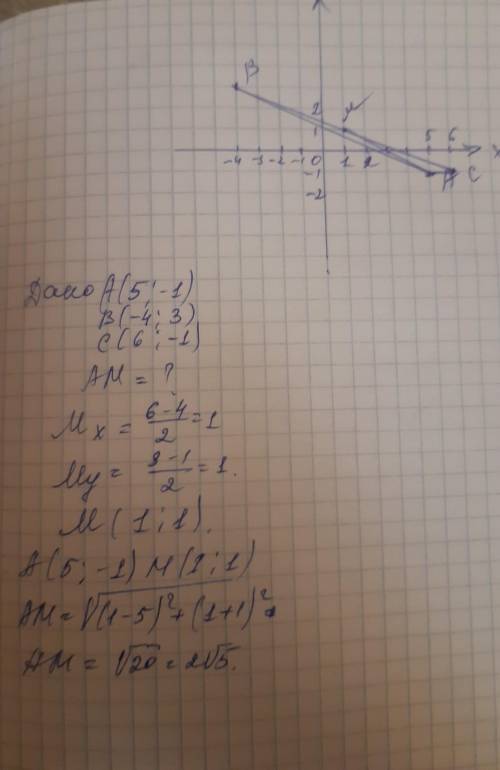 B
2
M
1
5 6
-4 -3 -2 -1 0 1 2 X
-1 A C
-2
Дано A(5; -1)
B(-4; 3)
C(6; -1)
AM = ?
Mx = 6-4/2 = 1
My = 3-1/2 = 1.
M(1; 1).
A(5; -1) M(1; 1)
AM = √(1-5)²+(1+1)² =
AM = √20 = 2√5.